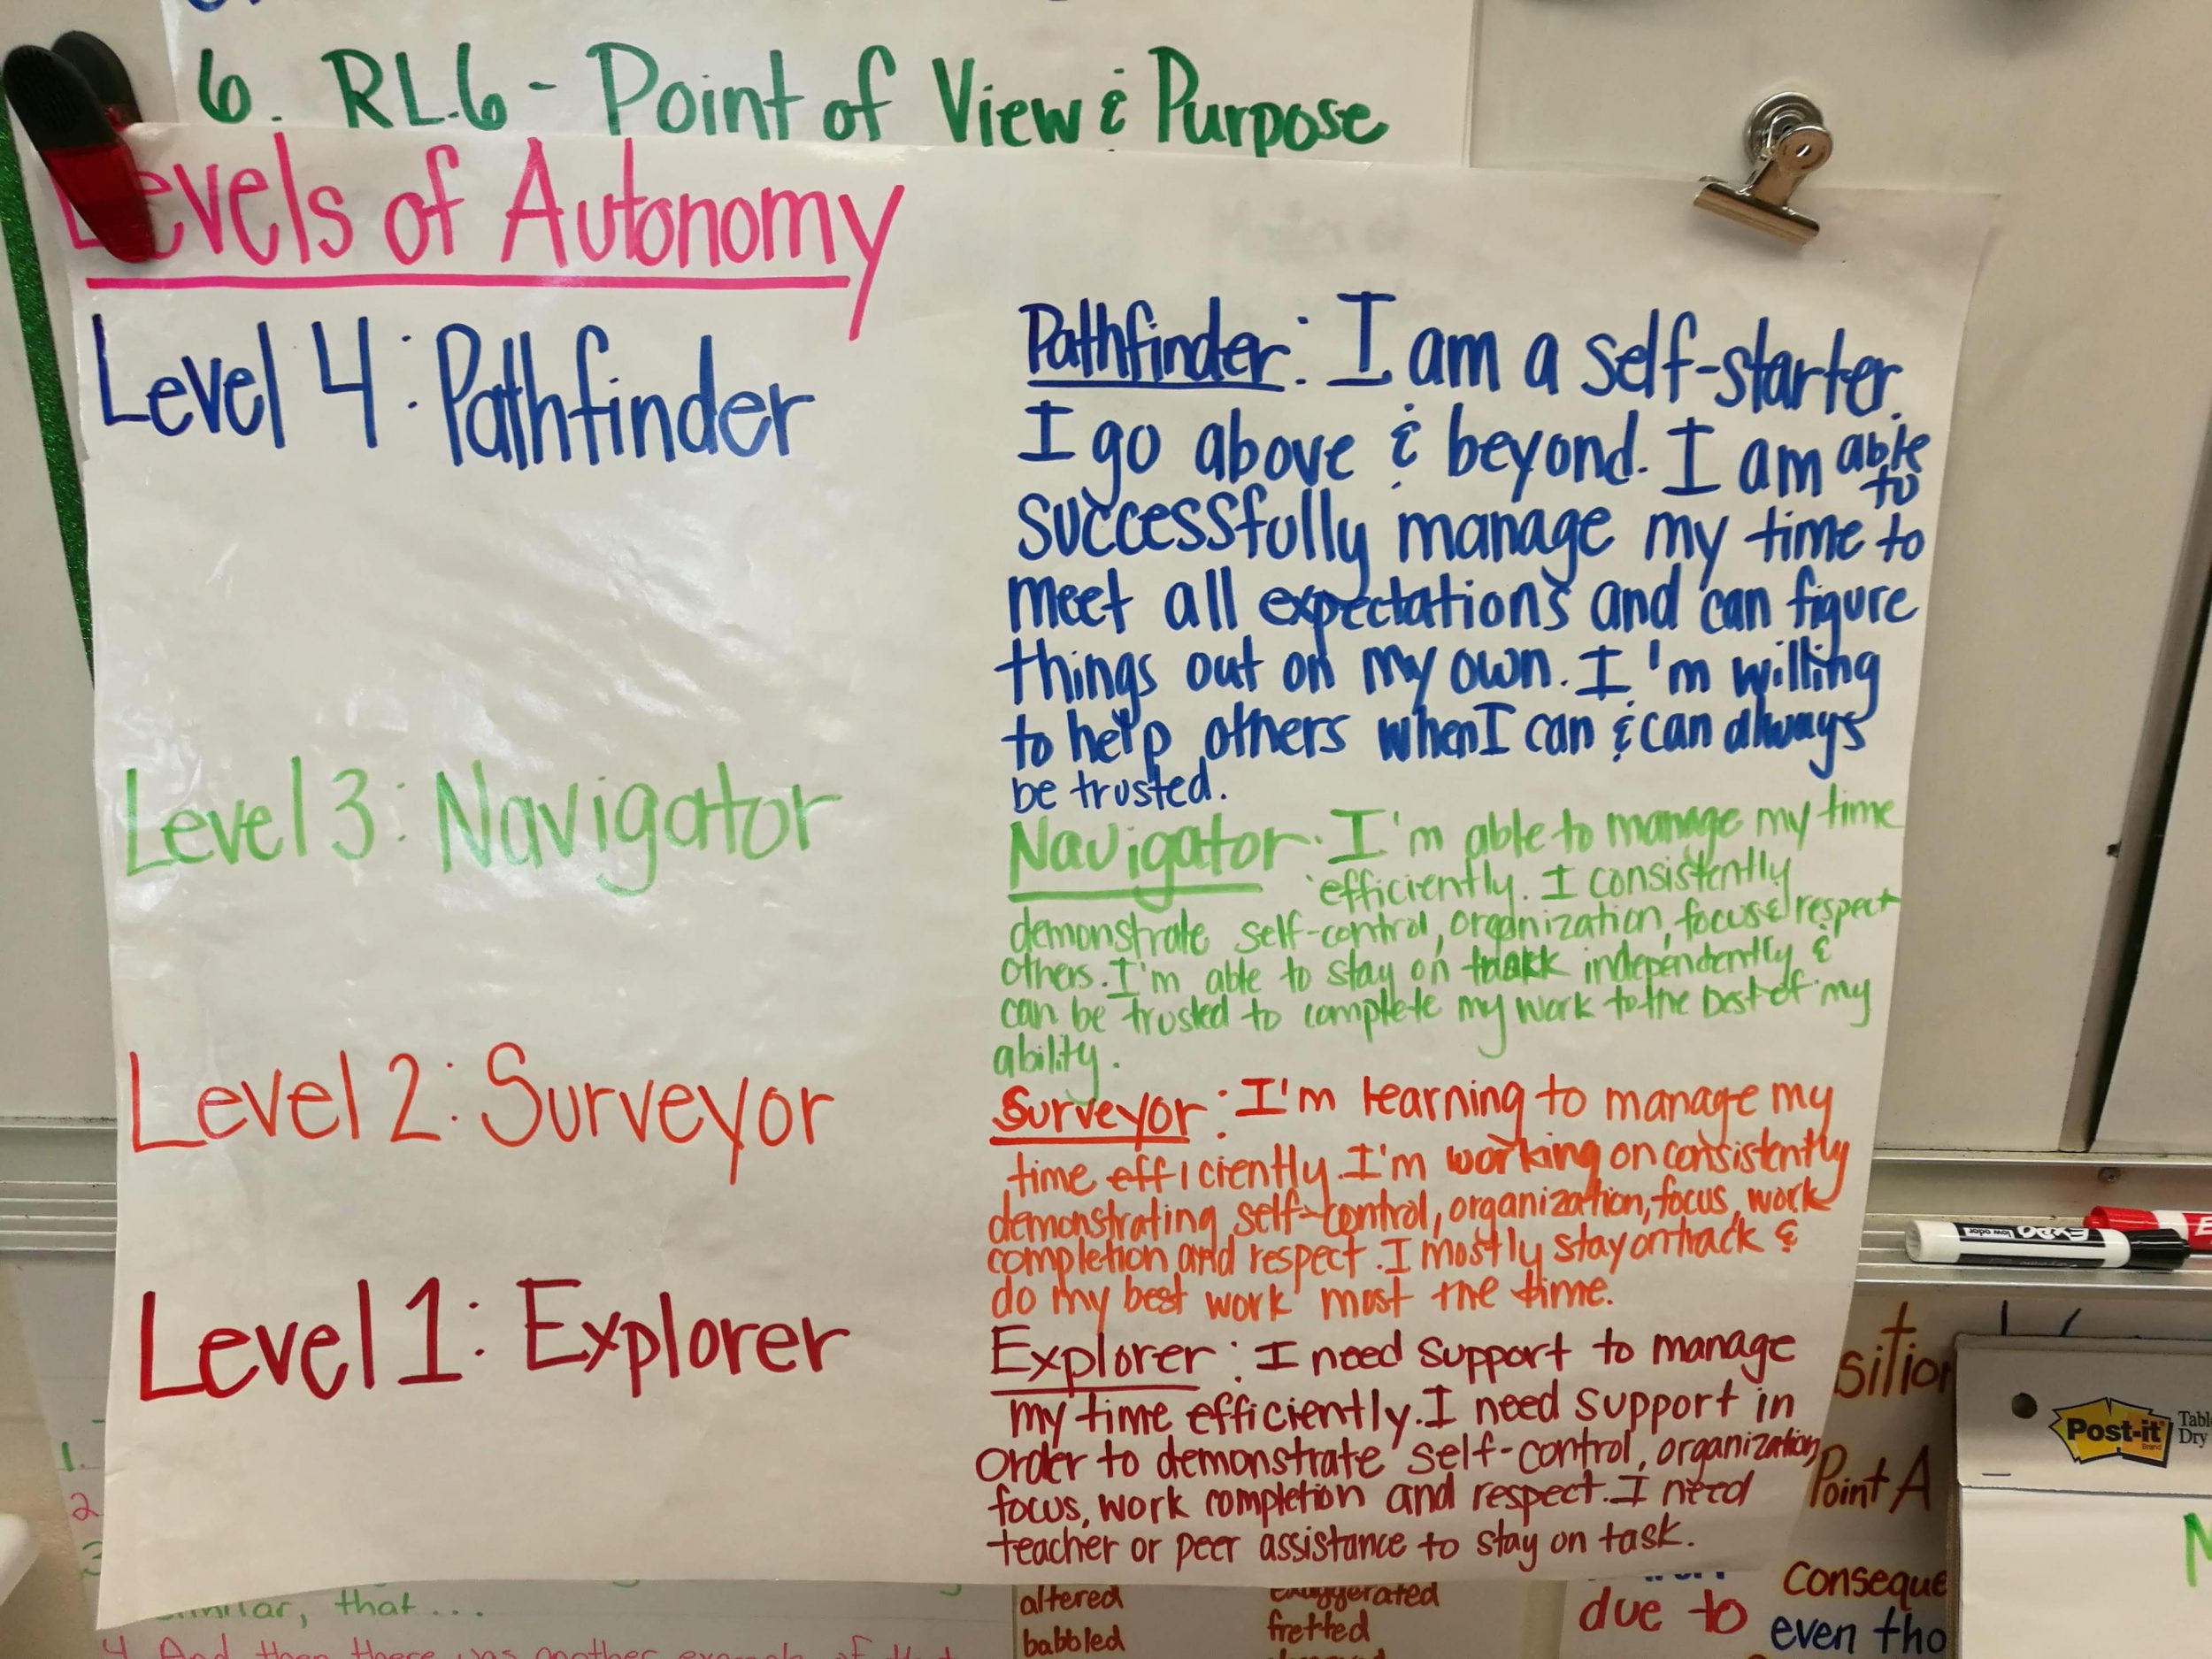 6. RL.6 - Point of View & Purpose
Levels of Autonomy
Level 4: Pathfinder
Level 3: Navigator
Level 2: Surveyor
Level 1: Explorer
Pathfinder: I am a self-starter.
I go above & beyond. I am able to
successfully manage my time to
meet all expectations and can figure
things out on my own. I'm willing
to help others when I can & can always
be trusted.
Navigator: I'm able to manage my time
efficiently. I consistently
demonstrate self-control, organization, focus & respect
others. I'm able to stay on task independently &
can be trusted to complete my work to the best of my
ability.
Surveyor: I'm learning to manage my
time efficiently. I'm working on consistently
demonstrating self-control, organization, focus, work
completion and respect. I mostly stay on track &
do my best work most the time.
Explorer: I need support to manage
my time efficiently. I need support in
order to demonstrate self-control, organization,
focus, work completion and respect. I need
teacher or peer assistance to stay on task.
EXPO
low odor
sition
Point A
Conseque
even tho
due to
Post-it
Brand
Tabl
Dry
1.
2.
3
that...
4. And then there was another example of that
altered
babbled
exaggerated
fretted